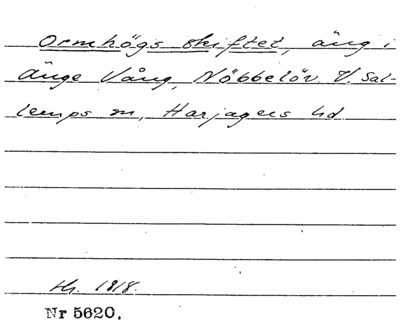 Ormhögs skiftet, äng i
Änge Vång, Nöbbelöv. V. Sal-
lerups sn, Harjagers hd
Hs. 1818.
Nr 5620.